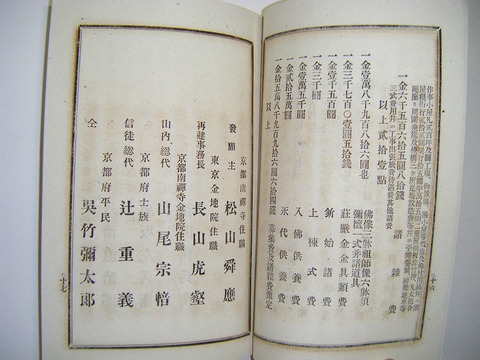 一金六千五百六拾五圓八拾錢 諸雜費
以上貳拾壹點
一金壹萬八千九百九拾六圓也 佛像三躰祖師像六躰須
彌壇一式并諸道具
一金三千七百〇壹圓五拾錢 莊嚴金具類費
一金壹千五百圓 釿始諸費
一金三千圓 上棟式費
一金壹萬五千圓 入佛供養費
一金貳拾五萬圓 永代供養費
一金拾五萬八千九百九拾六圓六拾五錢 募集費及諸雜費豫定
以上
京都南禪寺住職
發願主 松山舜應
東京金地院住職
再建事務長 長山虎壑
京都南禪寺金地院住職
山内總代 山尾宗愔
京都府士族
信徒總代 辻重義
京都府平民
仝 吳竹彌太郎
十七